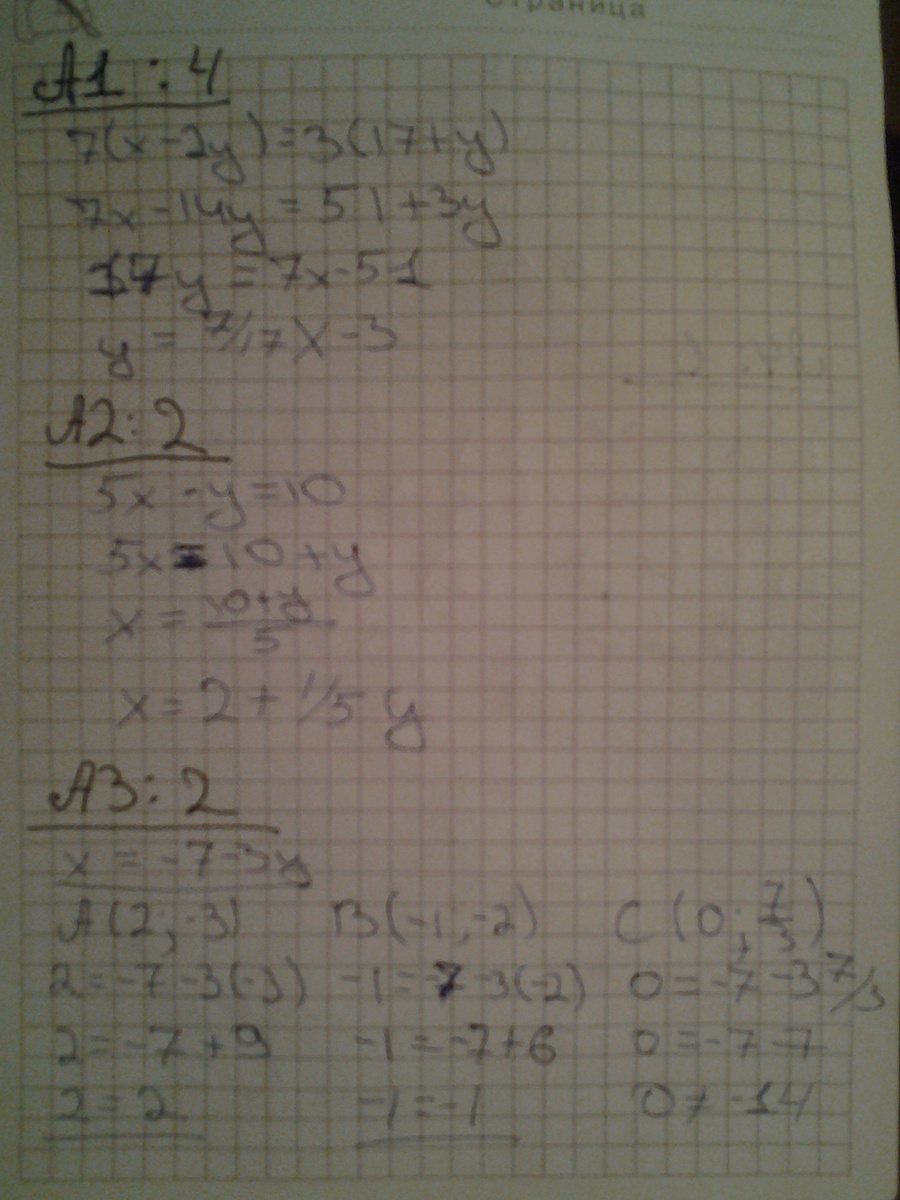 Страница
A1 : 4
7(x-2y)=3(17+y)
7x-14y=51+3y
17y=7x-51
y=7/17x-3
A2: 2
5x-y=10
5x=10+y
x=\frac{10+y}{5}
x=2+1/5 y
A3: 2
x=-7-3y
A(2;-3) B(-1;-2) C(0;\frac{7}{3})
2=-7-3(-3) -1=-7-3(-2) 0=-7-3 7/3
2=-7+9 -1=-7+6 0=-7-7
2=2 -1=-1 0≠-14